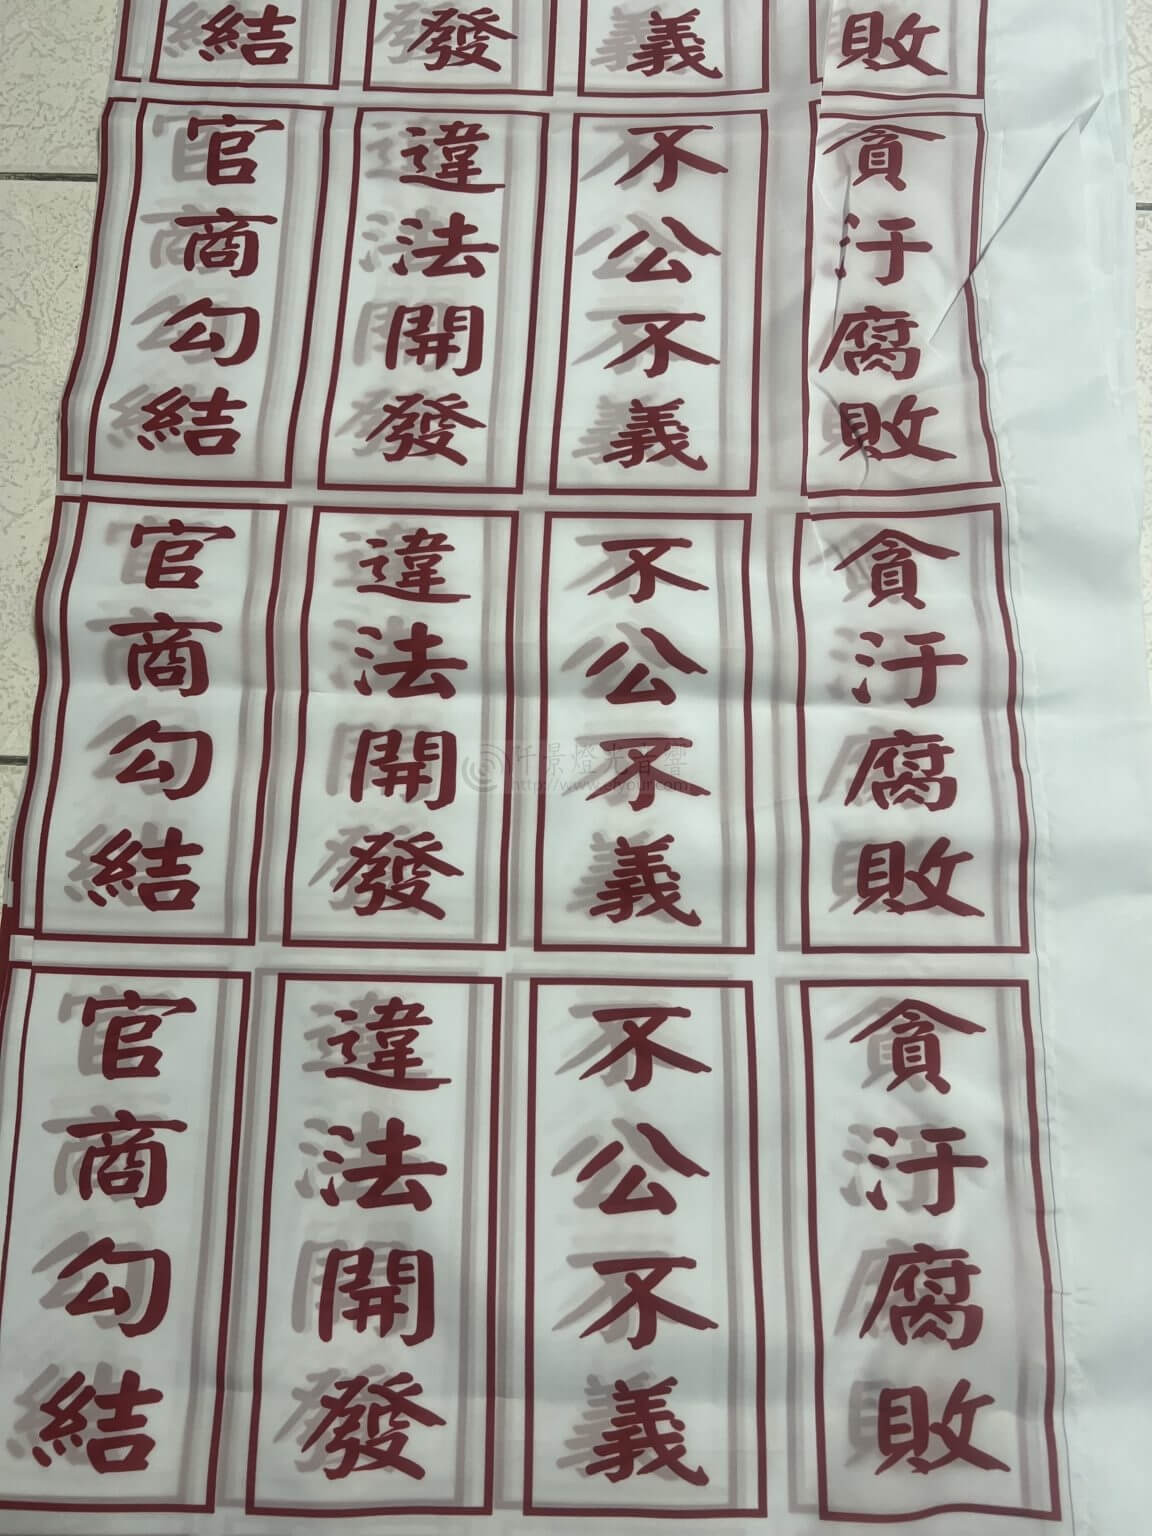 結
發
義
敗
官商勾結
違法開發
不公不義
貪汙腐敗
官商勾結
違法開發
不公不義
貪汙腐敗
阡景燈光音響
官商勾結
違法開發
不公不義
貪汙腐敗